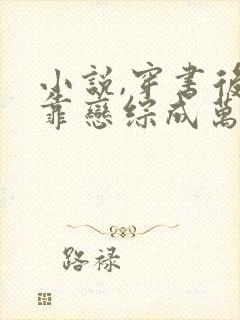 小說,穿書後
靠戀綜成萬
路祿